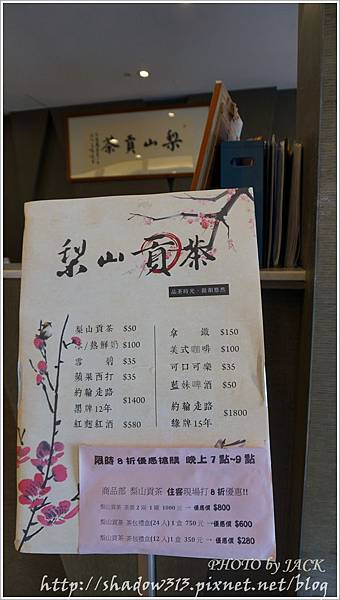 茶貢山梨
梨山貢茶
品茶時光‧靜謐悠然
梨山貢茶 $50
冰/熱鮮奶 $100
雪碧 $35
蘋果西打 $35
約翰走路
黑牌12年 $1400
紅麴紅酒 $580
拿鐵 $150
美式咖啡 $100
可口可樂 $35
藍妹啤酒 $50
約翰走路
綠牌15年 $1800
限時8折優惠搶購 晚上7點~9點
商品部 梨山貢茶 住客現場打8折優惠!!
梨山貢茶 茶葉2兩1罐 1000元 → 優惠價 $800
梨山貢茶 茶包禮盒(24入)1盒 750元 → 優惠價 $600
梨山貢茶 茶包禮盒(12入)1盒 350元 → 優惠價 $280
PHOTO by JACK
http://shadow313.pixnet.net/blog